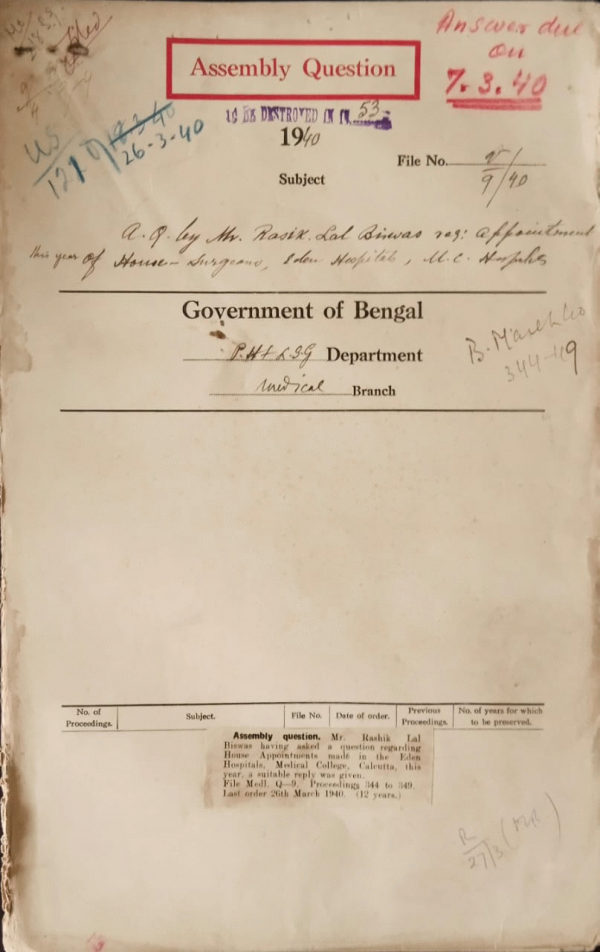 Answer due
on
7.3.40
Assembly Question
TO BE DESTROYED IN 53
1940
26-3-40
File No.
9/40
Subject
A. Q. by Mr. Rasik Lal Biswas reg: appointment
this year of House-Surgeons, Eden Hospitals, M. C. Hospitals
Government of Bengal
P.H & L.S.G Department
Medical Branch
B. March/40
344-49
No. of Proceedings. Subject. File No. Date of order. Previous Proceedings. No. of years for which to be preserved.
Assembly question. Mr. Rashik Lal
Biswas having asked a question regarding
House Appointments made in the Eden
Hospitals, Medical College, Calcutta, this
year, a suitable reply was given.
File Medl. Q—9. Proceedings 344 to 349.
Last order 26th March 1940. (12 years.)
R
27/3